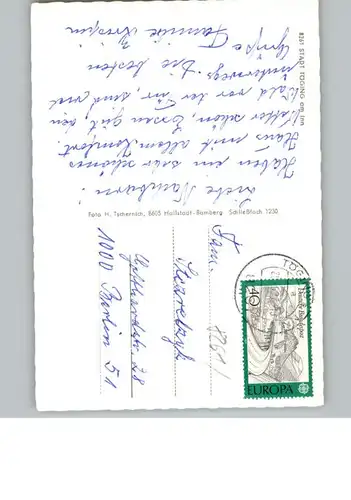 8261 STADT TÖGING am Inn
Liebe Nachbarn!
Haben ein sehr schönes
Haus mit allem Komfort.
Wetter schön, Essen gut, den
Wald vor der Tür, sind viel
unterwegs. Die besten
Grüße
Familie
Foto H. Tschernich, 8605 Hallstadt-Bamberg Schließfach 1230
Fam.
1000 Berlin 51
8261
TÖGING
40
Deutsche Bundespost
EUROPA